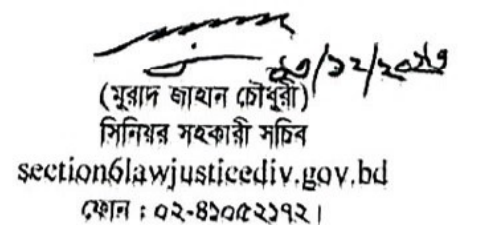 /১২/২০২৩
(মুরাদ জাহান চৌধুরী)
সিনিয়র সহকারী সচিব
section6lawjusticediv.gov.bd
ফোন : ০২-৪১০৫২১৭২।